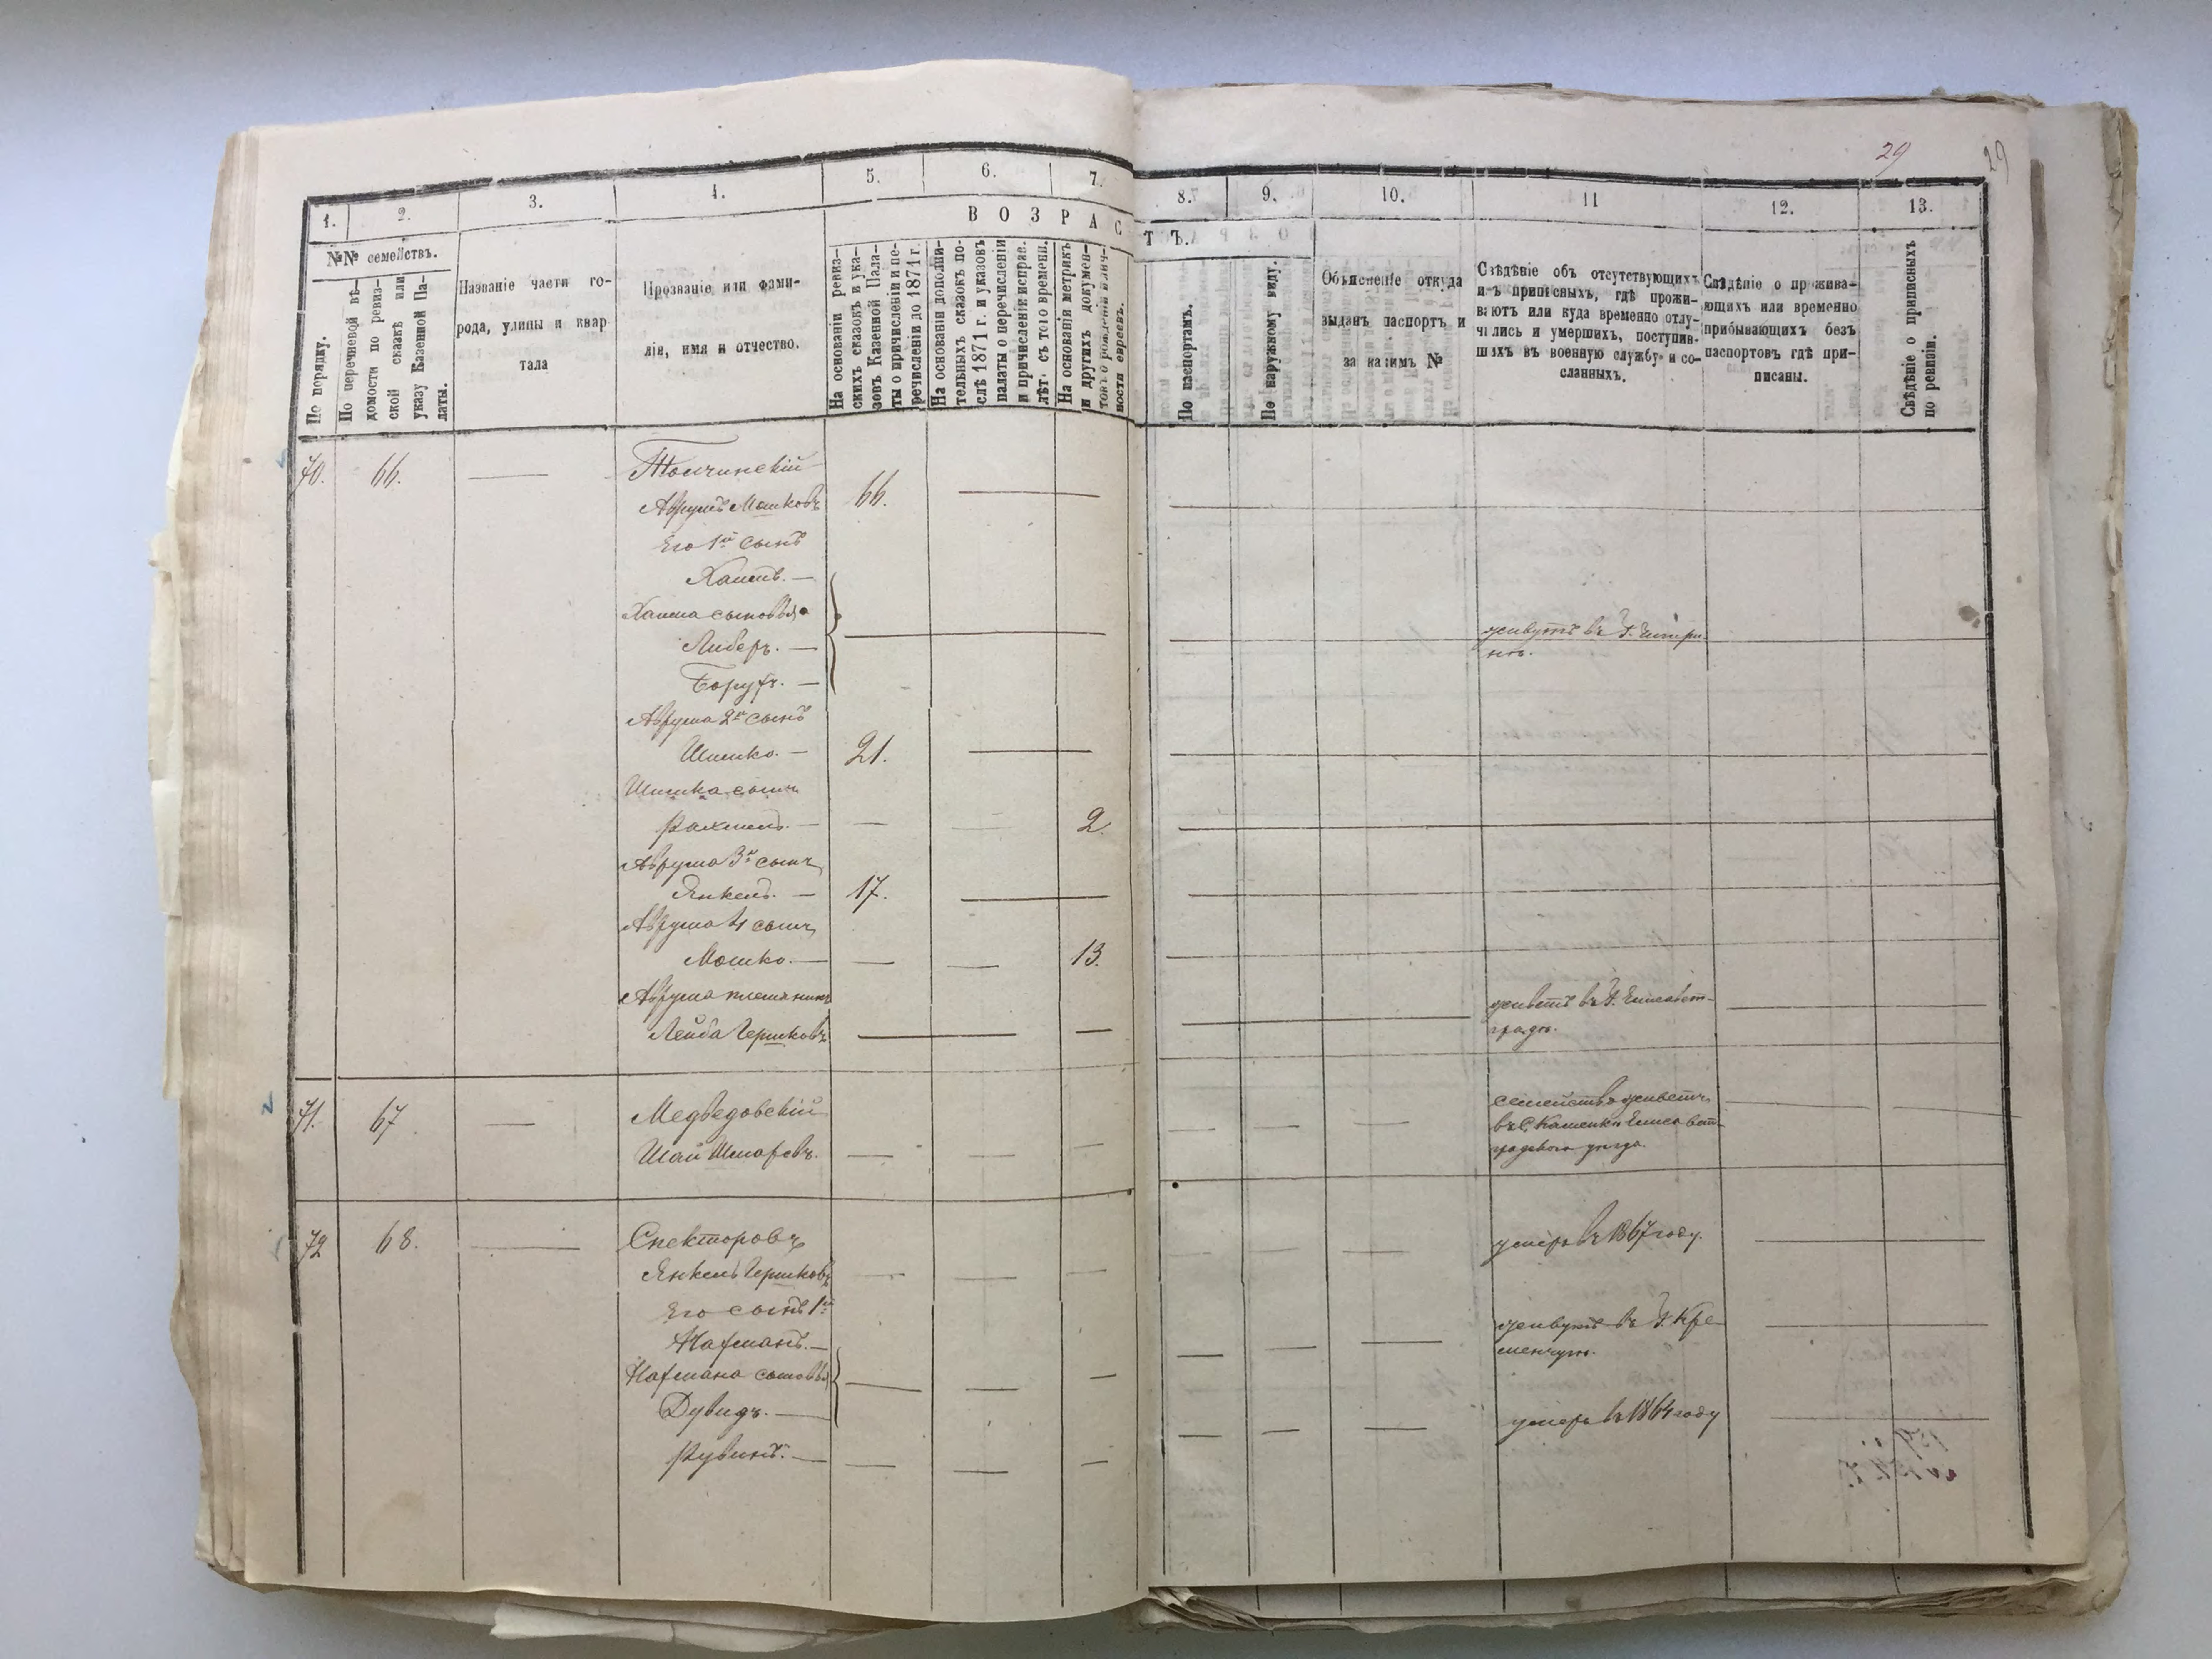 29
29
1.
2.
3.
4.
5.
6.
7.
8.
9.
10.
11
12.
13.
В О З Р А С
Т Ъ.
№№ семействъ.
По порядку.
По перечневой вѣ-
домости по ревиз-
ской сказкѣ или
указу Казенной Па-
латы.
Названіе части го-
рода, улицы и квар-
тала
Прозваніе или фами-
лія, имя и отчество.
На основаніи ревиз-
скихъ сказокъ и ука-
зовъ Казенной Пала-
ты о причисленіи и пе-
речисленіи до 1871 г.
На основаніи дополни-
тельныхъ сказокъ по-
слѣ 1871 г. и указовъ
палаты о перечисленіи
и причисленіи исправ.
лѣт. съ того времени.
На основаніи метрикъ
и другихъ докумен-
товъ о рожденіи
ности евреевъ.
По паспортамъ.
По наружному виду.
Объясненіе откуда
выданъ паспортъ и
за какимъ №
Свѣдѣніе объ отсутствующихъ
изъ приписныхъ, гдѣ прожи-
ваютъ или куда временно отлу-
чились и умершихъ, поступив-
шихъ въ военную службу и со-
сланныхъ.
Свѣдѣніе о прожива-
ющихъ или временно
прибывающихъ безъ
паспортовъ гдѣ при-
писаны.
Свѣдѣніе о приписныхъ
по ревизіи.
70. 66. — Толчинскій
Аврумъ Мошковъ 66.
Его 1й сынъ
Хаимъ. —
Хаима сыновья
Либеръ. — живутъ въ г.
Борухъ. —
Аврума 2й сынъ
Шимко. — 21.
Шимка сынъ
Рахмель. — 2.
Аврума 3й сынъ
Янкель. — 17.
Аврума 4 сынъ
Мошко. — 13.
Аврума племянникъ живетъ въ г. Елисавет-
Лейба Гершковъ градѣ.
71. 67 — Медведовскій семейство живетъ
Шай Шмаровъ. въ с. Каменкѣ Елисавет-
градскаго уѣзда.
72 68. — Спекторовъ умеръ въ 1867 году.
Янкель Гершковъ
Его сынъ 1й
Нахманъ. — живутъ въ г. Кре-
Нахмана сыновья менчугѣ.
Дувидъ. — умеръ въ 1864 году
Рувинъ. —